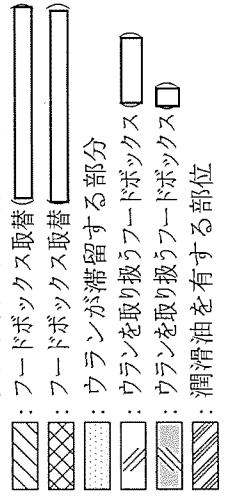 ：フードボックス取替
：フードボックス取替
：ウランが滞留する部分
：ウランを取り扱うフードボックス
：ウランを取り扱うフードボックス
：潤滑油を有する部位